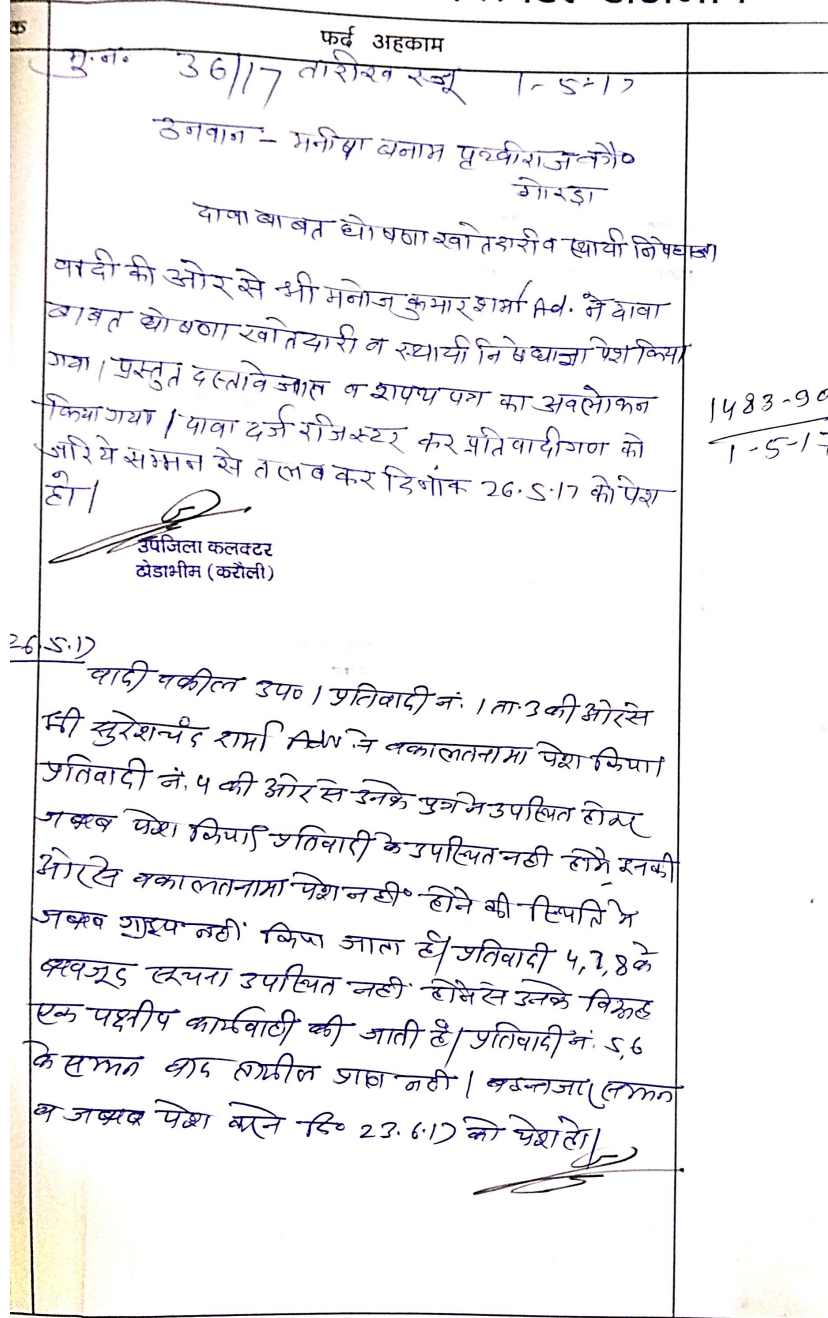 फर्द अहकाम
मु.नं. 36/17 तारीख रजू 1-5-17
उनवान - मनीषा बनाम पृथ्वीराज वगै०
गोरडा
दावा बाबत घोषणा खातेदारी व स्थायी निषेधाज्ञा
वादी की ओर से श्री मनोज कुमार शर्मा Ad. ने दावा
बाबत घोषणा खातेदारी व स्थायी निषेधाज्ञा पेश किया
गया। प्रस्तुत दस्तावेजात व शपथ पत्र का अवलोकन
किया गया। दावा दर्ज रजिस्टर कर प्रतिवादीगण को
जरिये सम्मन से तलब कर दिनांक 26.5.17 को पेश
हो।
1483-90
1-5-17
उपजिला कलक्टर
टोडाभीम (करौली)
26.5.17
वादी वकील उप०। प्रतिवादी नं. 1 ता. 3 की ओर से
श्री सुरेशचंद शर्मा Adv. ने वकालतनामा पेश किया।
प्रतिवादी नं. 4 की ओर से उनके पुत्र ने उपस्थित होकर
जबाब पेश किया। प्रतिवादी के उपस्थित नहीं होने इनकी
ओर से वकालतनामा पेश नहीं होने की स्थिति में
जबाब ग्राहय नहीं किया जाता है। प्रतिवादी 4,7,8 के
बावजूद सूचना उपस्थित नहीं होने से उनके विरूद्ध
एक पक्षीय कार्यवाही की जाती है। प्रतिवादी नं. 5,6
के सम्मन बाद तामील प्राप्त नहीं। बइन्तजार सम्मन
व जबाब पेश करने दि० 23.6.17 को पेश हो।